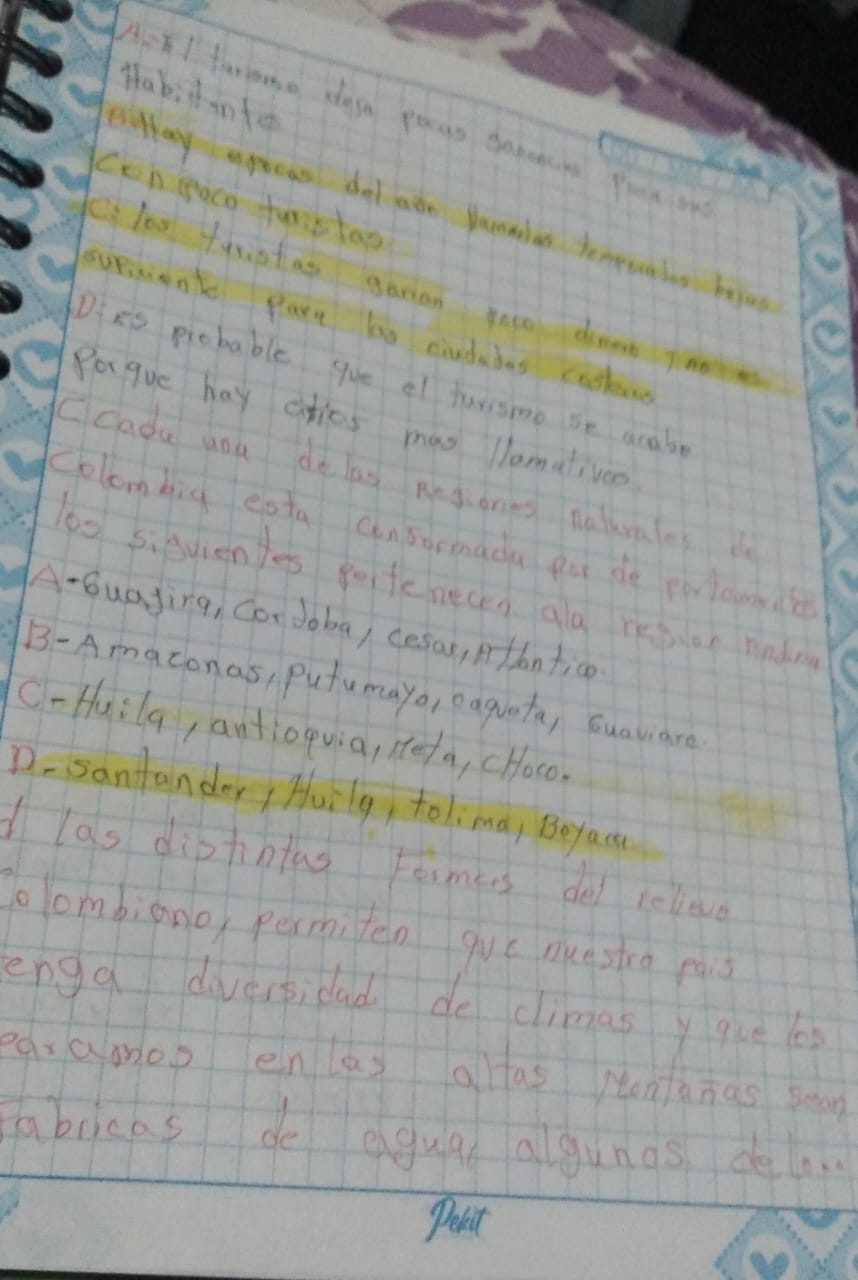 A- El turismo deja pocas ganancias para sus
Habitantes
B- Hay epocas del año llamadas temporadas bajas
Con poco turistas
C: los turistas gastan poco dinero y no es
suficiente para las ciudades costeras
D: es probable que el turismo se acabe
Porque hay sitios mas llamativos
C cada una de las Regiones naturales de
Colombia esta conformada por departamentos
los siguientes pertenecen ala region Andina
A-Guajira, Cordoba, cesar, Atlantico.
B-Amaconas, putumayo, caqueta, Guaviare.
C-Huila, antioquia, Meta, CHoco.
D-santander, Huila, tolima, Boyaca
d las distintas Formas del relieve
Colombiano, permiten que nuestro pais
enga diversidad de climas y que los
paramos en las altas Montañas sean
Fabricas de agua, algunos de lo...
Pekit